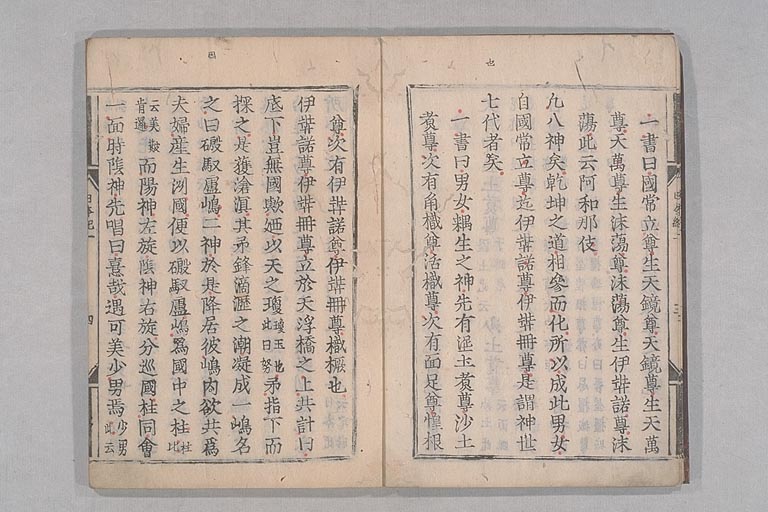 一書曰國常立尊生天鏡尊天鏡尊生天萬
尊天萬尊生沫蕩尊沫蕩尊生伊弉諾尊沫
蕩此云阿和那伎
凡八神矣乾坤之道相參而化所以成此男女
自國常立尊迄伊弉諾尊伊弉冊尊是謂神世
七代者矣
一書曰男女耦生之神先有埿土煑尊沙土
煑尊次有角樴尊活樴尊次有面足尊惶根
尊次有伊弉諾尊伊弉冊尊樴橛也
伊弉諾尊伊弉冊尊立於天浮橋之上共計曰
底下豈無國歟廼以天之瓊瓊玉也此曰努矛指下而
探之是獲滄溟其矛鋒滴瀝之潮凝成一嶋名
之曰磤馭盧嶋二神於是降居彼嶋內欲共爲
夫婦産生洲國便以磤馭盧嶋爲國中之柱柱此
云美簸肯邏而陽神左旋陰神右旋分巡國柱同會
一面時陰神先唱曰憙哉遇可美少男焉少男此云
四
四